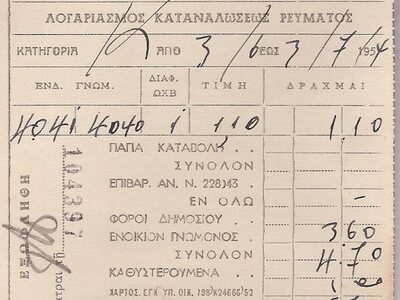 ΛΟΓΑΡΙΑΣΜΟΣ ΚΑΤΑΝΑΛΩΣΕΩΣ ΡΕΥΜΑΤΟΣ
ΚΑΤΗΓΟΡΙΑ Κ ΑΠΟ 3/6 ΕΩΣ 3/7/1954
ΕΝΔ. ΓΝΩΜ. ΔΙΑΦ. ΩΧΒ ΤΙΜΗ ΔΡΑΧΜΑΙ
4041 4040 1 1.10 1.10
ΠΑΓΙΑ ΚΑΤΑΒΟΛΗ . .
ΣΥΝΟΛΟΝ
ΕΠΙΒΑΡ. ΑΝ. Ν. 228)43 .
ΕΝ ΟΛΩ –
ΦΟΡΟΙ ΔΗΜΟΣΙΟΥ . . .
ΕΝΟΙΚΙΟΝ ΓΝΩΜΟΝΟΣ . 3 60
ΣΥΝΟΛΟΝ 4.70
ΚΑΘΥΣΤΕΡΟΥΜΕΝΑ . .
ΕΞΩΦΛΗΘΗ
104397